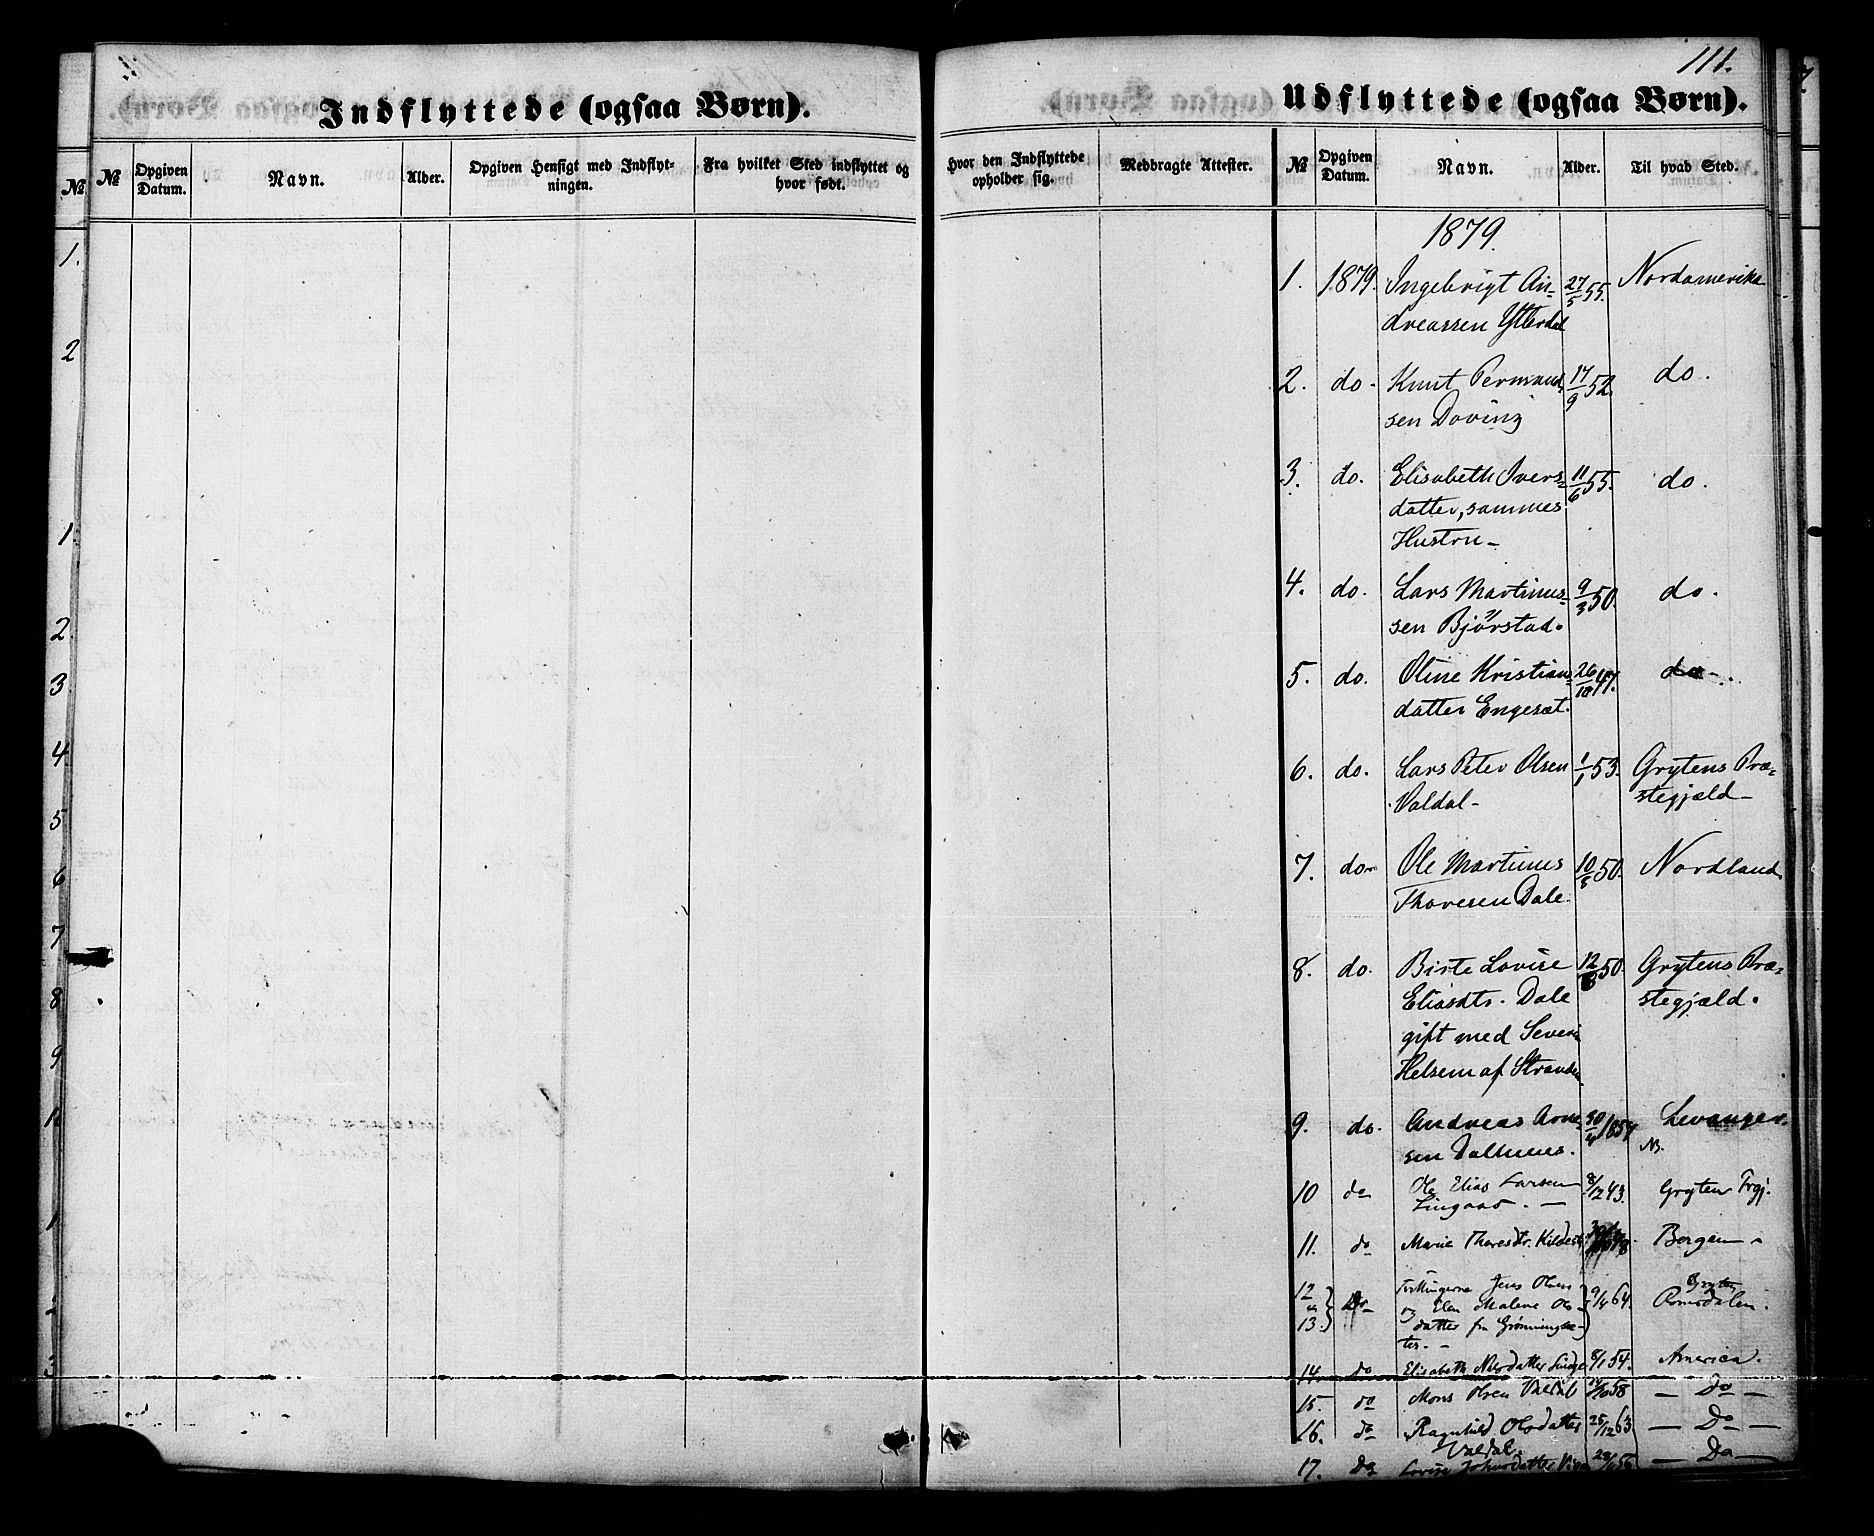 111.
Indflyttede (ogsaa Børn).
Udflyttede (ogsaa Børn).
№
№ Opgiven Datum. Navn. Alder. Opgiven Hensigt med Indflyt-
ningen. Fra hvilket Sted indflyttet og
hvor født.
Hvor den Indflyttede
opholder sig. Medbragte Attester.
№ Opgiven Datum. Navn. Alder. Til hvad Sted.
1.
2
1.
2
3
4
5
6
7
8
9
1879.
1. 1879. Ingebrigt An- 27/5 55. Nordamerika
dreassen Ytterdal
2. do. Knut Permand 17/9 52. do.
sen Døving
3. do. Elisabeth Ivers- 11/6 55. do.
datter, sammes
Hustru -
4. do. Lars Martinus- 9/3 50. do.
sen Bjørstad.
5. do. Oline Kristian- 26/10 47. do.
datter Engeset.
6. do. Lars Peter Olsen 1/1 53. Grytens Præ-
Valdal - stegjæld -
7. do. Ole Martinus 10/5 50. Nordland
Thoresen Dale.
8. do. Birte Lovise 12/8 50 Grytens Præ-
Eliasdtr. Dale stegjæld.
gift med Sever
Helsem af Stranden
9. do. Andreas Arne- 30/4 1854 Levanger.
sen Dalhuus. NB.
10 do Ole Elias Larsen 8/12 43. Gryten Prgj.
Lingaas. -
11. do Marie Thoresdtr. Kildest Bergen -
12 Tvillingerne Jens Olsen Gryten
og 13. Do og Elen Malene Ols- 9/4 64. Romsdalen.
datter fra Grønningsæ-
ter. -
14. do Elisabeth Nilsdatter Linge 8/1 54. America.
15. do Mons Olsen Valdal 14/10 58 - Do -
16. do Ragnhild Olsdatter 25/12 63 - Do -
Valdal.
17. do Lovise Johnsdatter - Do -